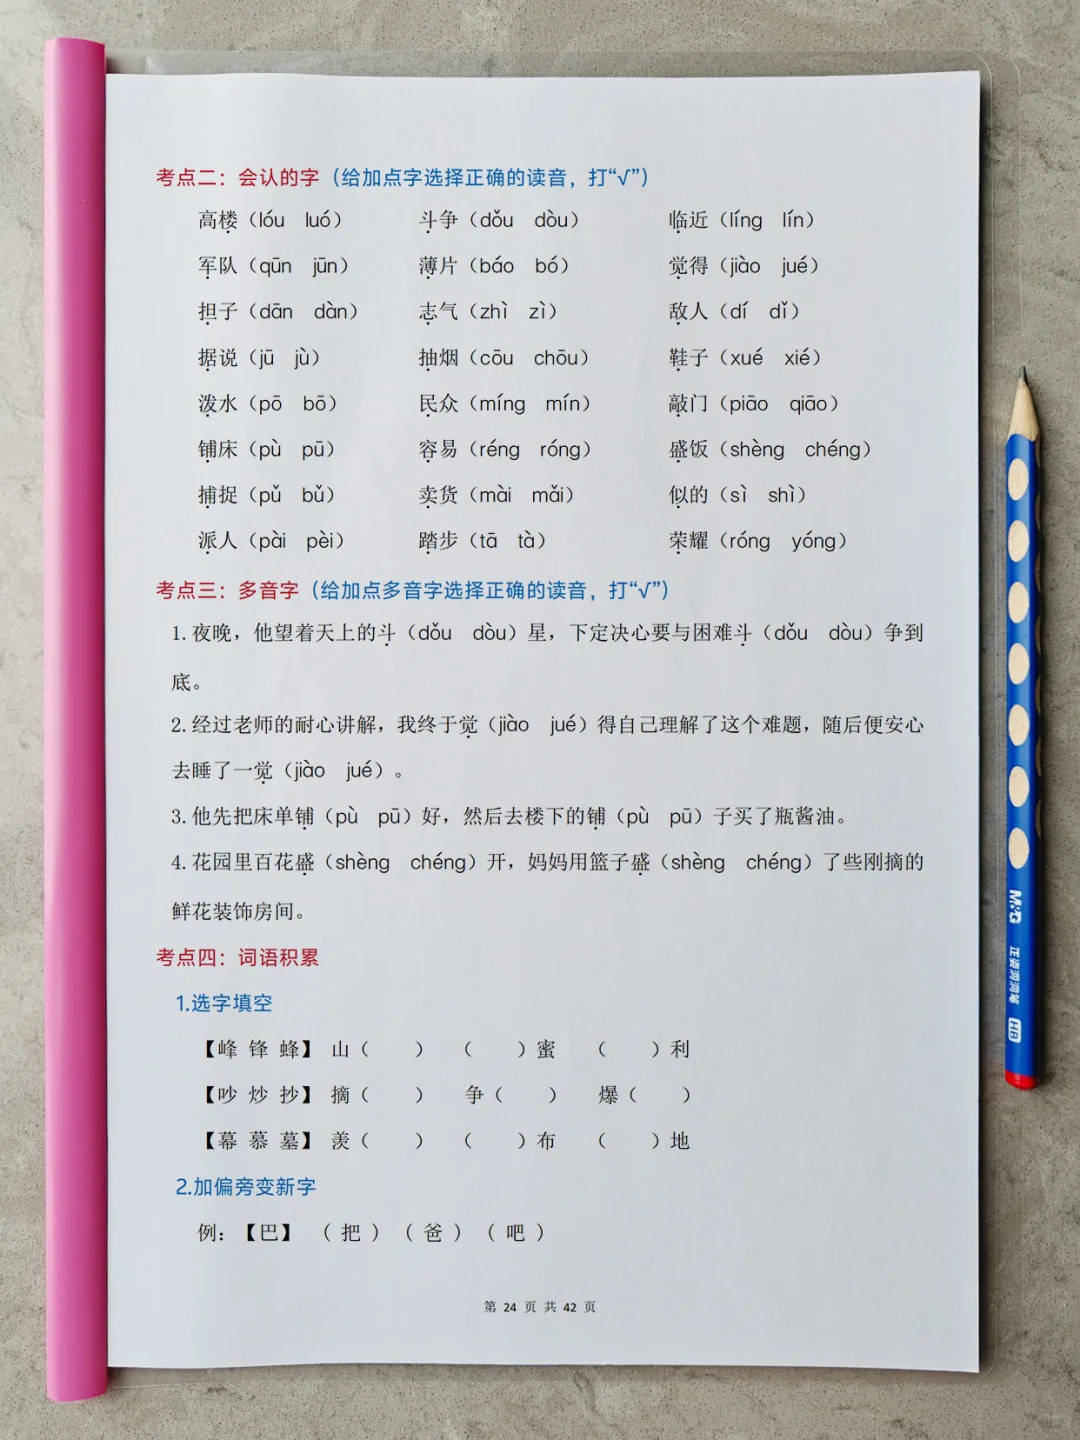 考点二：会认的字（给加点字选择正确的读音，打“√”）
高楼（lóu luó） 斗争（dǒu dòu） 临近（líng lín）
军队（qūn jūn） 薄片（báo bó） 觉得（jiào jué）
担子（dān dàn） 志气（zhì zì） 敌人（dí dǐ）
据说（jū jù） 抽烟（cōu chōu） 鞋子（xué xié）
泼水（pō bō） 民众（míng mín） 敲门（piāo qiāo）
铺床（pù pū） 容易（réng róng） 盛饭（shèng chéng）
捕捉（pǔ bǔ） 卖货（mài mǎi） 似的（sì shì）
派人（pài pèi） 踏步（tā tà） 荣耀（róng yóng）
考点三：多音字（给加点多音字选择正确的读音，打“√”）
1.夜晚，他望着天上的斗（dǒu dòu）星，下定决心要与困难斗（dǒu dòu）争到
底。
2.经过老师的耐心讲解，我终于觉（jiào jué）得自己理解了这个难题，随后便安心
去睡了一觉（jiào jué）。
3.他先把床单铺（pù pū）好，然后去楼下的铺（pù pū）子买了瓶酱油。
4.花园里百花盛（shèng chéng）开，妈妈用篮子盛（shèng chéng）了些刚摘的
鲜花装饰房间。
考点四：词语积累
1.选字填空
【峰 锋 蜂】 山（ ） （ ）蜜 （ ）利
【吵 炒 抄】 摘（ ） 争（ ） 爆（ ）
【幕 慕 墓】 羡（ ） （ ）布 （ ）地
2.加偏旁变新字
例：【巴】 （ 把 ） （ 爸 ） （ 吧 ）
第 24 页 共 42 页
M&G 正姿洞洞笔 HB